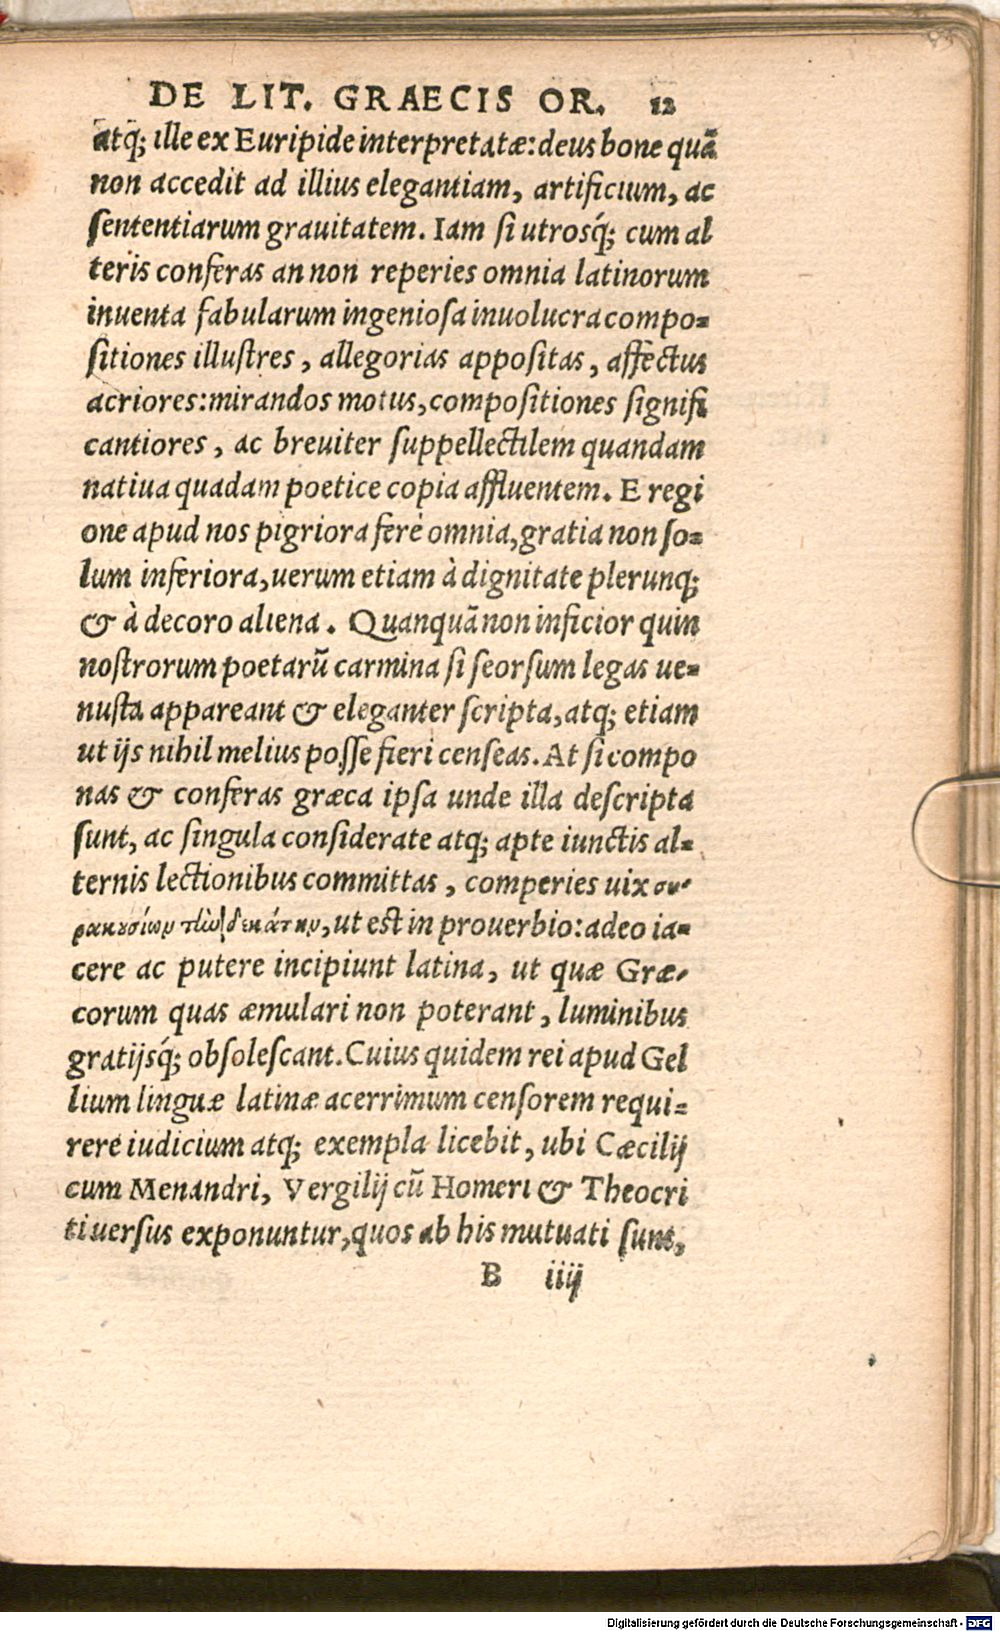 DE LIT. GRAECIS OR. 12
atq; ille ex Euripide interpretatæ: deus bone quã
non accedit ad illius elegantiam, artificium, ac
sententiarum grauitatem. Iam si utrosq́; cum al
teris conferas an non reperies omnia latinorum
inuenta fabularum ingeniosa inuolucra compo-
sitiones illustres, allegorias appositas, affectus
acriores: mirandos motus, compositiones signifi
cantiores, ac breuiter suppellectilem quandam
natiua quadam poetice copia affluentem. E regi
one apud nos pigriora ferè omnia, gratia non so-
lum inferiora, uerum etiam à dignitate plerunq;
& à decoro aliena. Quanquã non inficior quin
nostrorum poetarũ carmina si seorsum legas ue-
nusta appareant & eleganter scripta, atq; etiam
ut ijs nihil melius posse fieri censeas. At si compo
nas & conferas græca ipsa unde illa descripta
sunt, ac singula considerate atq; apte iunctis al-
ternis lectionibus committas, comperies uix συ-
ρακουσίων τὴν δεκάτην, ut est in prouerbio: adeo ia-
cere ac putere incipiunt latina, ut quæ Græ-
corum quas æmulari non poterant, luminibus
gratijsq́; obsolescant. Cuius quidem rei apud Gel
lium linguæ latinæ acerrimum censorem requi-
rere iudicium atq; exempla licebit, ubi Cæcilij
cum Menandri, Vergilij cũ Homeri & Theocri
ti uersus exponuntur, quos ab his mutuati sunt,
B iiij
Digitalisierung gefördert durch die Deutsche Forschungsgemeinschaft - DFG